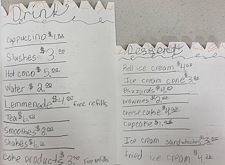 Drink
Cappuccino $1.00
Slushes $3.00
Hot coco $5.00
Water $2.00
Lemmenade $4.00 free refills
Tea $1.00
Smoothie $2.00
Shakes $1.00
Coke products $2.00 free refills
Dessert
Roll ice cream $4.00
Ice cream cone
Blizzards $4.00
brownies $2.00
cheese cake $4.00
Cupcake
Ice cream sandwhiches
fried ice cream